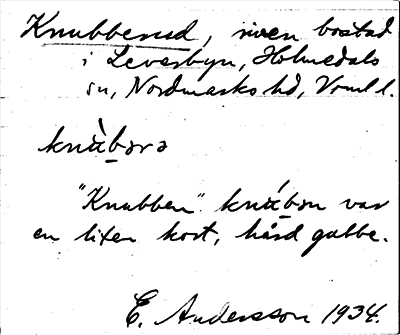 Knubberud, riven bostad
i Leverbyn, Holmedals
sn, Nordmarks hd, Vrml l.
knàbərə
"Knubben" knábən var
en liten kort, hård gubbe.
E. Andersson 1934.